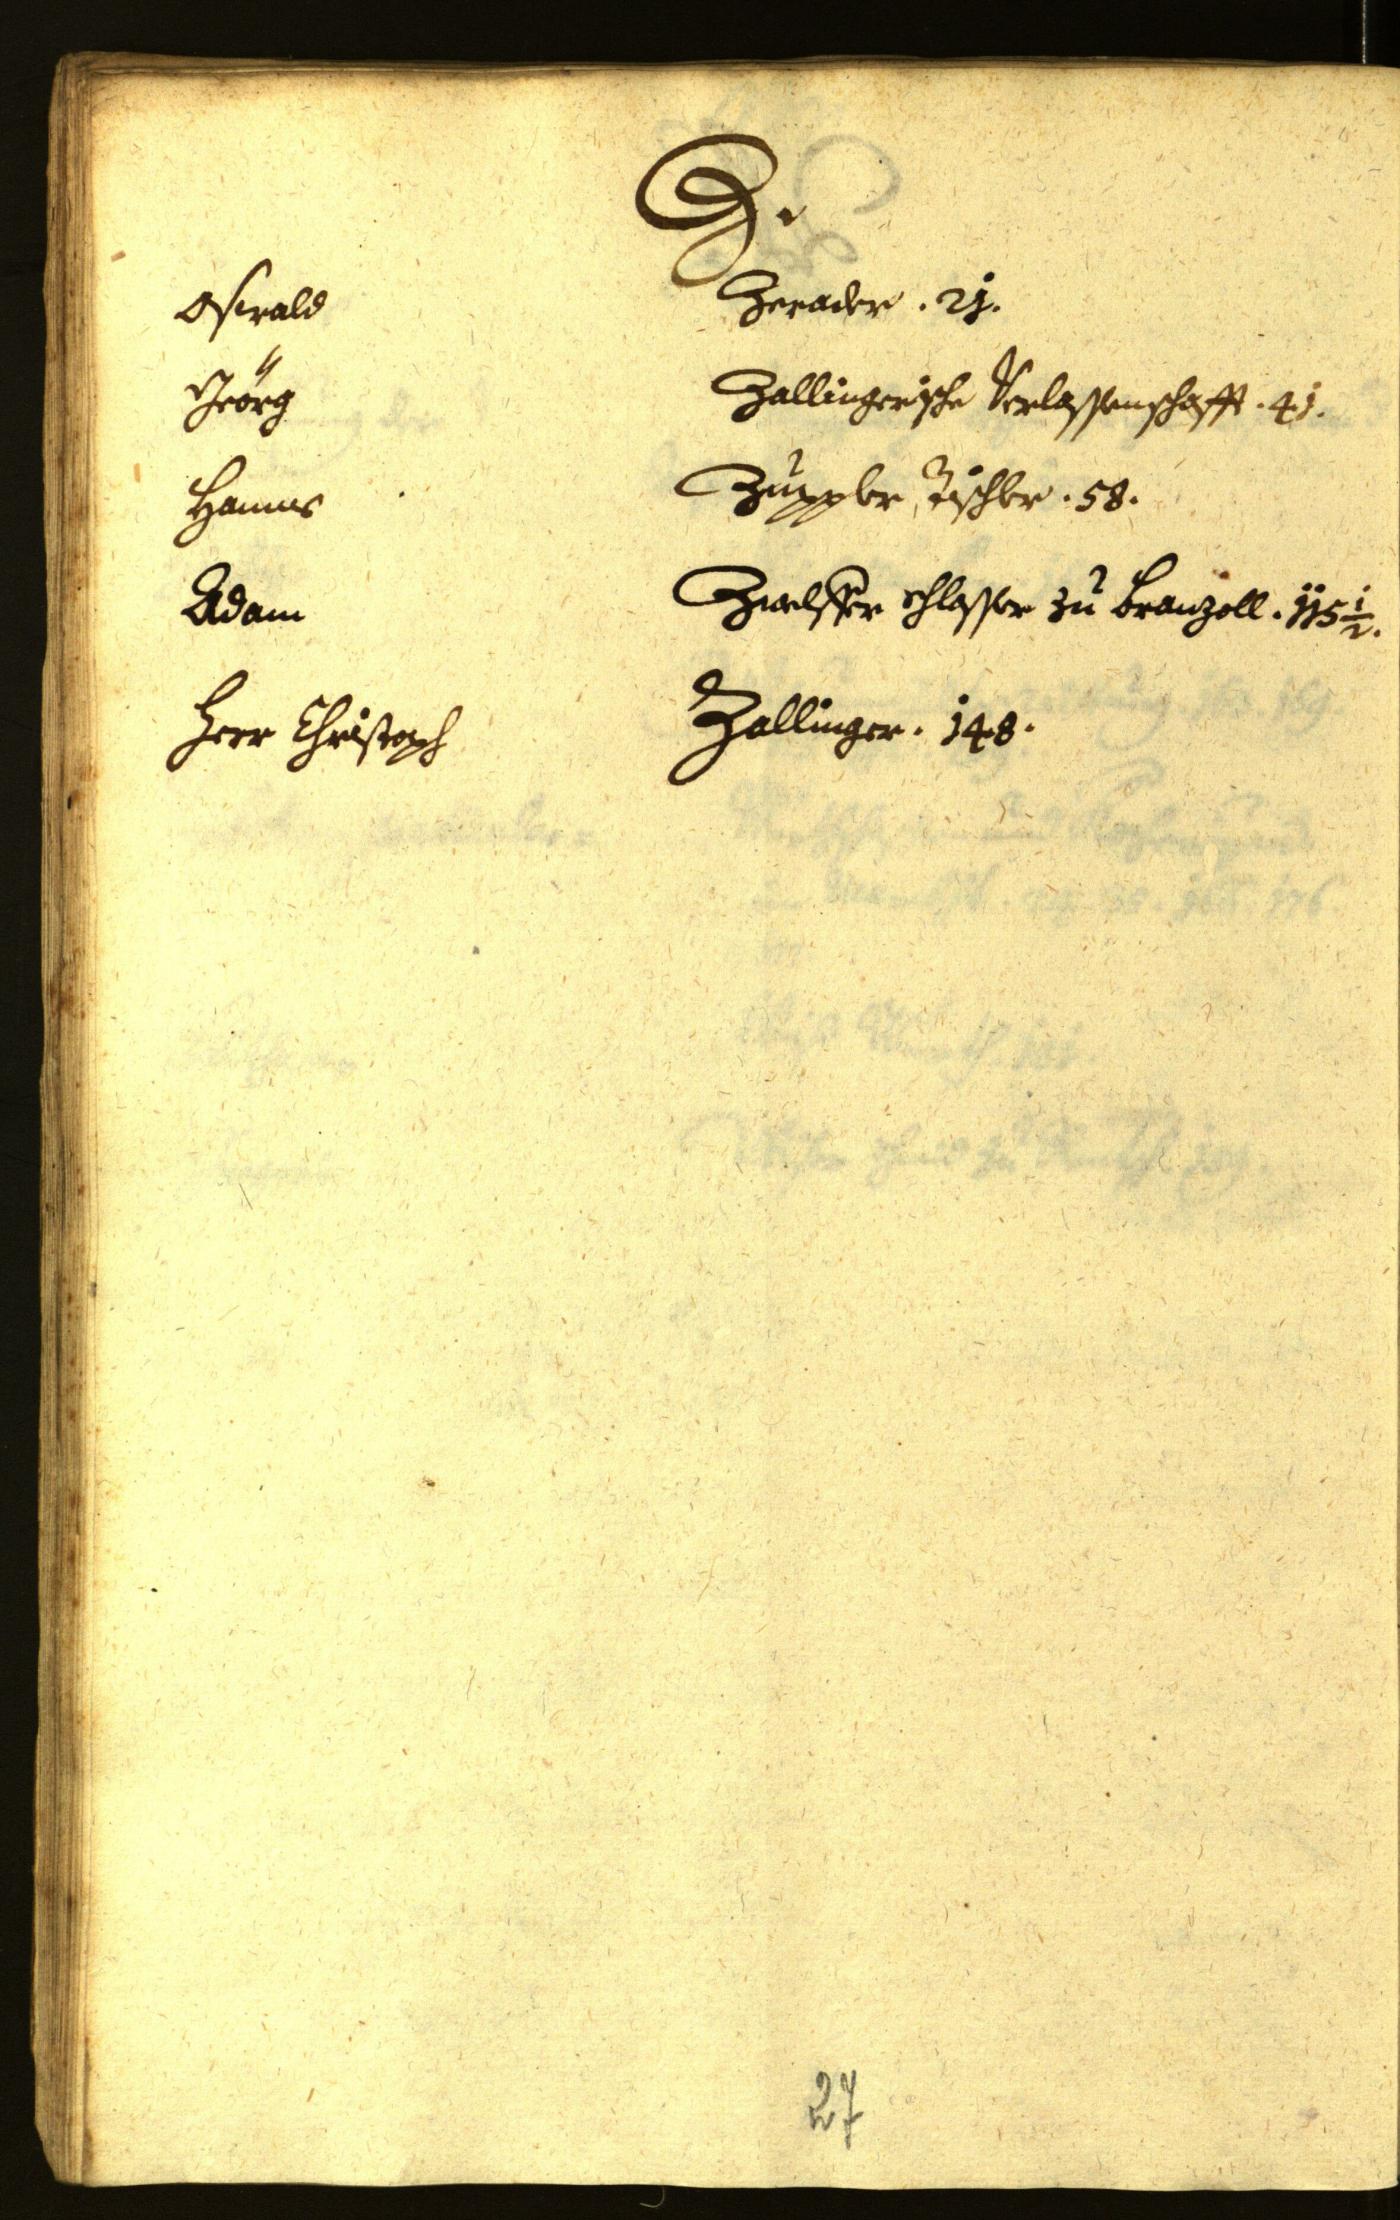 Z.
Oswald Zerader . 21.
Jeörg Zallingerische Verlassenschafft . 41.
Hanns Züppler, Tischler . 58.
Adam Schlosser zu Branzoll . 115 1/2.
Herr Christoph Zallinger . 148.
27